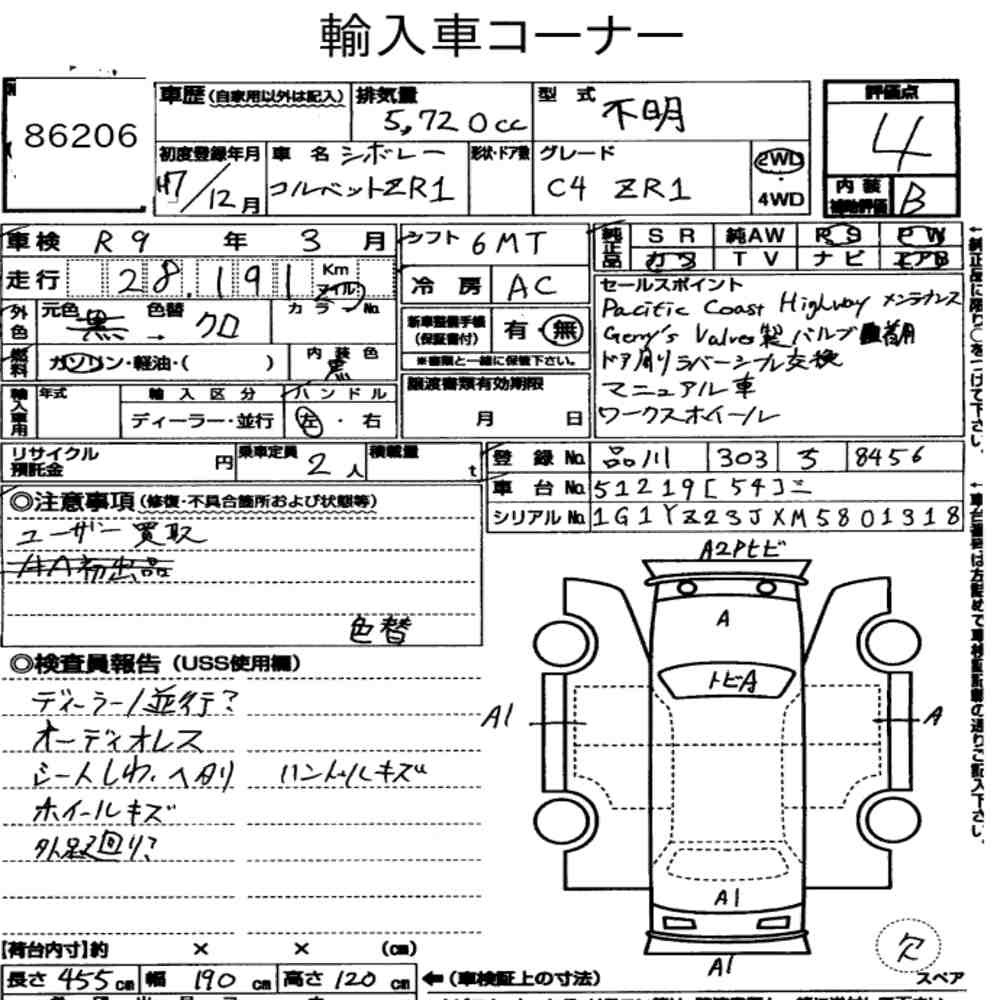 輸入車コーナー
86206
車歴 (自家用以外は記入)
排気量 5,720cc
型式 不明
評価点 4
初度登録年月 H7/12月
車名 シボレー コルベットZR1
形状・ドア数
グレード C4 ZR1
2WD ・ 4WD
内装補助評価 B
車検 R9 年 3 月
シフト 6MT
純正品 SR 純AW PS PW
カワ TV ナビ エアB
走行 28,191 Km マイル
冷房 AC
セールスポイント
Pacific Coast Highway メンテナンス
Gerry's Valves製バルブ
ドア周りラバーシール交換
マニュアル車
ワークスホイール
外色 元色 黒 → 色替 クロ カラーNo
新車整備手帳(保証書付) 有・無
※書類と一緒に保管下さい。
燃料 ガソリン・軽油・( )
内装色 黒
譲渡書類有効期限
月 日
輸入車用 年式 輸入区分 ディーラー・並行
ハンドル 左・右
リサイクル預託金 円
乗車定員 2人
積載量 t
登録No. 品川 303 ろ 8456
車台No. 51219[54]ニ
シリアルNo. 1G1YZ23JXM5801318
◎注意事項 (修復・不具合箇所および状態等)
ユーザー買取
初出品
色替
◎検査員報告 (USS使用欄)
ディーラー/並行?
オーディオレス
シートしわ、ヘタリ ハンドルキズ
ホイールキズ
外品廻り?
A2Pヒビ
A
トビA
A1
A
A1
A1
欠
スペア
【荷台内寸】約 × × (cm)
長さ 455cm 幅 190cm 高さ 120cm
← (車検証上の寸法)